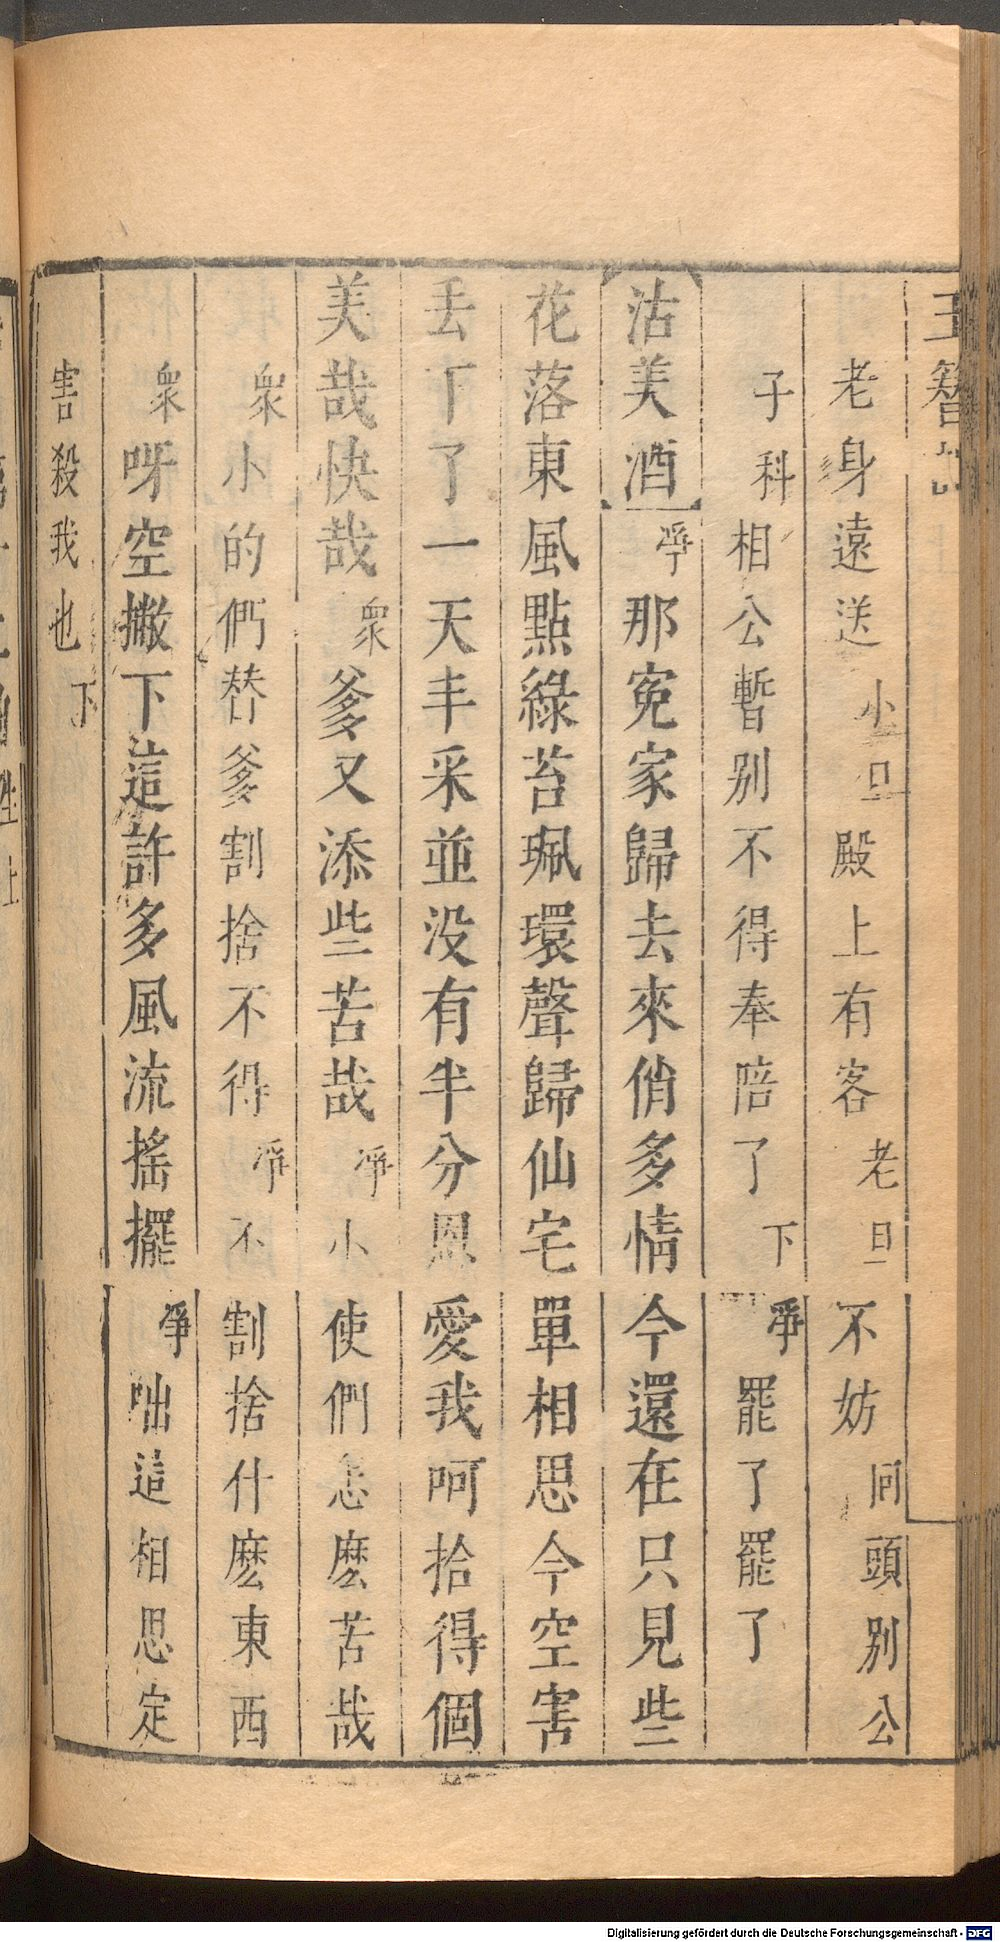 玉簪記
老身遠送小旦殿上有客老旦不妨回頭別公
子科相公暫别不得奉陪了下淨罷了罷了
沽美酒淨那寃家歸去來俏多情今還在只見些
花落東風點綠苔珮環聲歸仙宅單相思今空害
丢下了一天丰采並没有半分恩愛我呵拾得個
美哉快哉衆爹又添些苦哉淨小使們怎麽苦哉
衆小的們替爹割捨不得淨不割捨什麽東西
衆呀空撇下這許多風流搖擺淨咄這相思定
害殺我也下
Digitalisierung gefördert durch die Deutsche Forschungsgemeinschaft - DFG